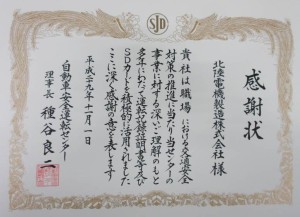 SJD
感謝状
北陸電機製造株式会社様
貴社は職場における交通安全
対策の推進に当たり当センターの
事業に対する深いご理解のもと
多年にわたって運転記録証明書及び
SDカードを積極的に活用されました
ここに深く感謝の意を表します
平成二十九年十一月一日
自動車安全運転センター
理事長 種谷良二